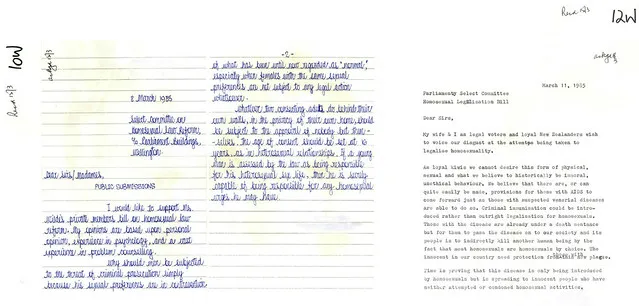 10W
8 March 1985
Select committee on
homosexual law reform,
c/o Parliament buildings,
Wellington.
Dear Sirs/madames,
PUBLIC SUBMISSIONS
I would like to support Ms.
Wilde's private members bill on homosexual law
reform. My opinions are based upon personal
opinion, experience in psychology, and in vast
experience in problem counselling.
Why should men be subjected
to the threat of criminal prosecution simply
because his sexual preferences are in contravention
-2-
of what has been until now regarded as "normal",
especially when females with the same sexual
preferences are not subject to any legal action
whatsoever.
Whatever two consenting adults do behind their
own walls, in the privacy of their own home, should
be subject to the approval of nobody but them-
selves. The age of consent should be set at 16
years, as in heterosexual relationships. If a young
man is assessed by the law as being responsible
for his heterosexual sex life, then he is surely
capable of being responsible for any homosexual
urges he may have.
12W
March 11, 1985
Parliamenty Select Committee
Homosexual Legalization Bill
Dear Sirs,
My wife & I as legal voters and loyal New Zealanders wish
to voice our disgust at the attempts being taken to
legalise homosexuality.
As loyal Kiwis we cannot desire this form of physical,
sexual and what we believe to historically be immoral,
unethical behaviour. We believe that there are, or can
quite easily be made, provisions for those with AIDS to
come forward just as those with suspected venerial diseases
are able to do so. Criminal immunization could be intro-
duced rather than outright legalization for homosexuals.
Those with the disease are already under a death sentence
but for them to pass the disease on to our society and its
people is to indirectly kill another human being by the
fact that most homosexuals are homosexuals by choice. The
innocent in our country need protection from this plague.
Time is proving that this disease is only being introduced
by homosexuals but is spreading to innocent people who have
neither attempted or condoned homosexual activities.